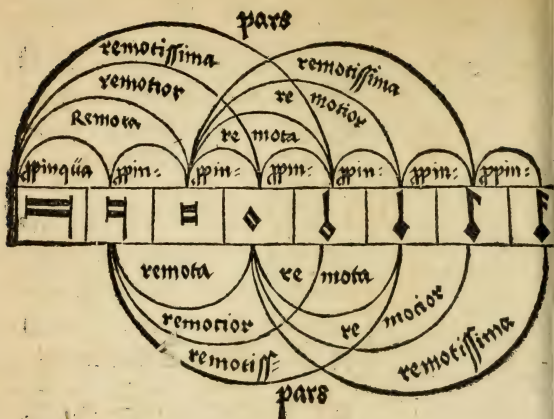 pars
remotissima
remotior
remotissima
re motior
Remota
re mota
ꝓpinqūa ꝓpin= ꝓpin= ꝓpin= ꝓpin= ꝓpin= ꝓpin=
remota
re mota
remotior
re mocior
remotiss=
remotissima
pars